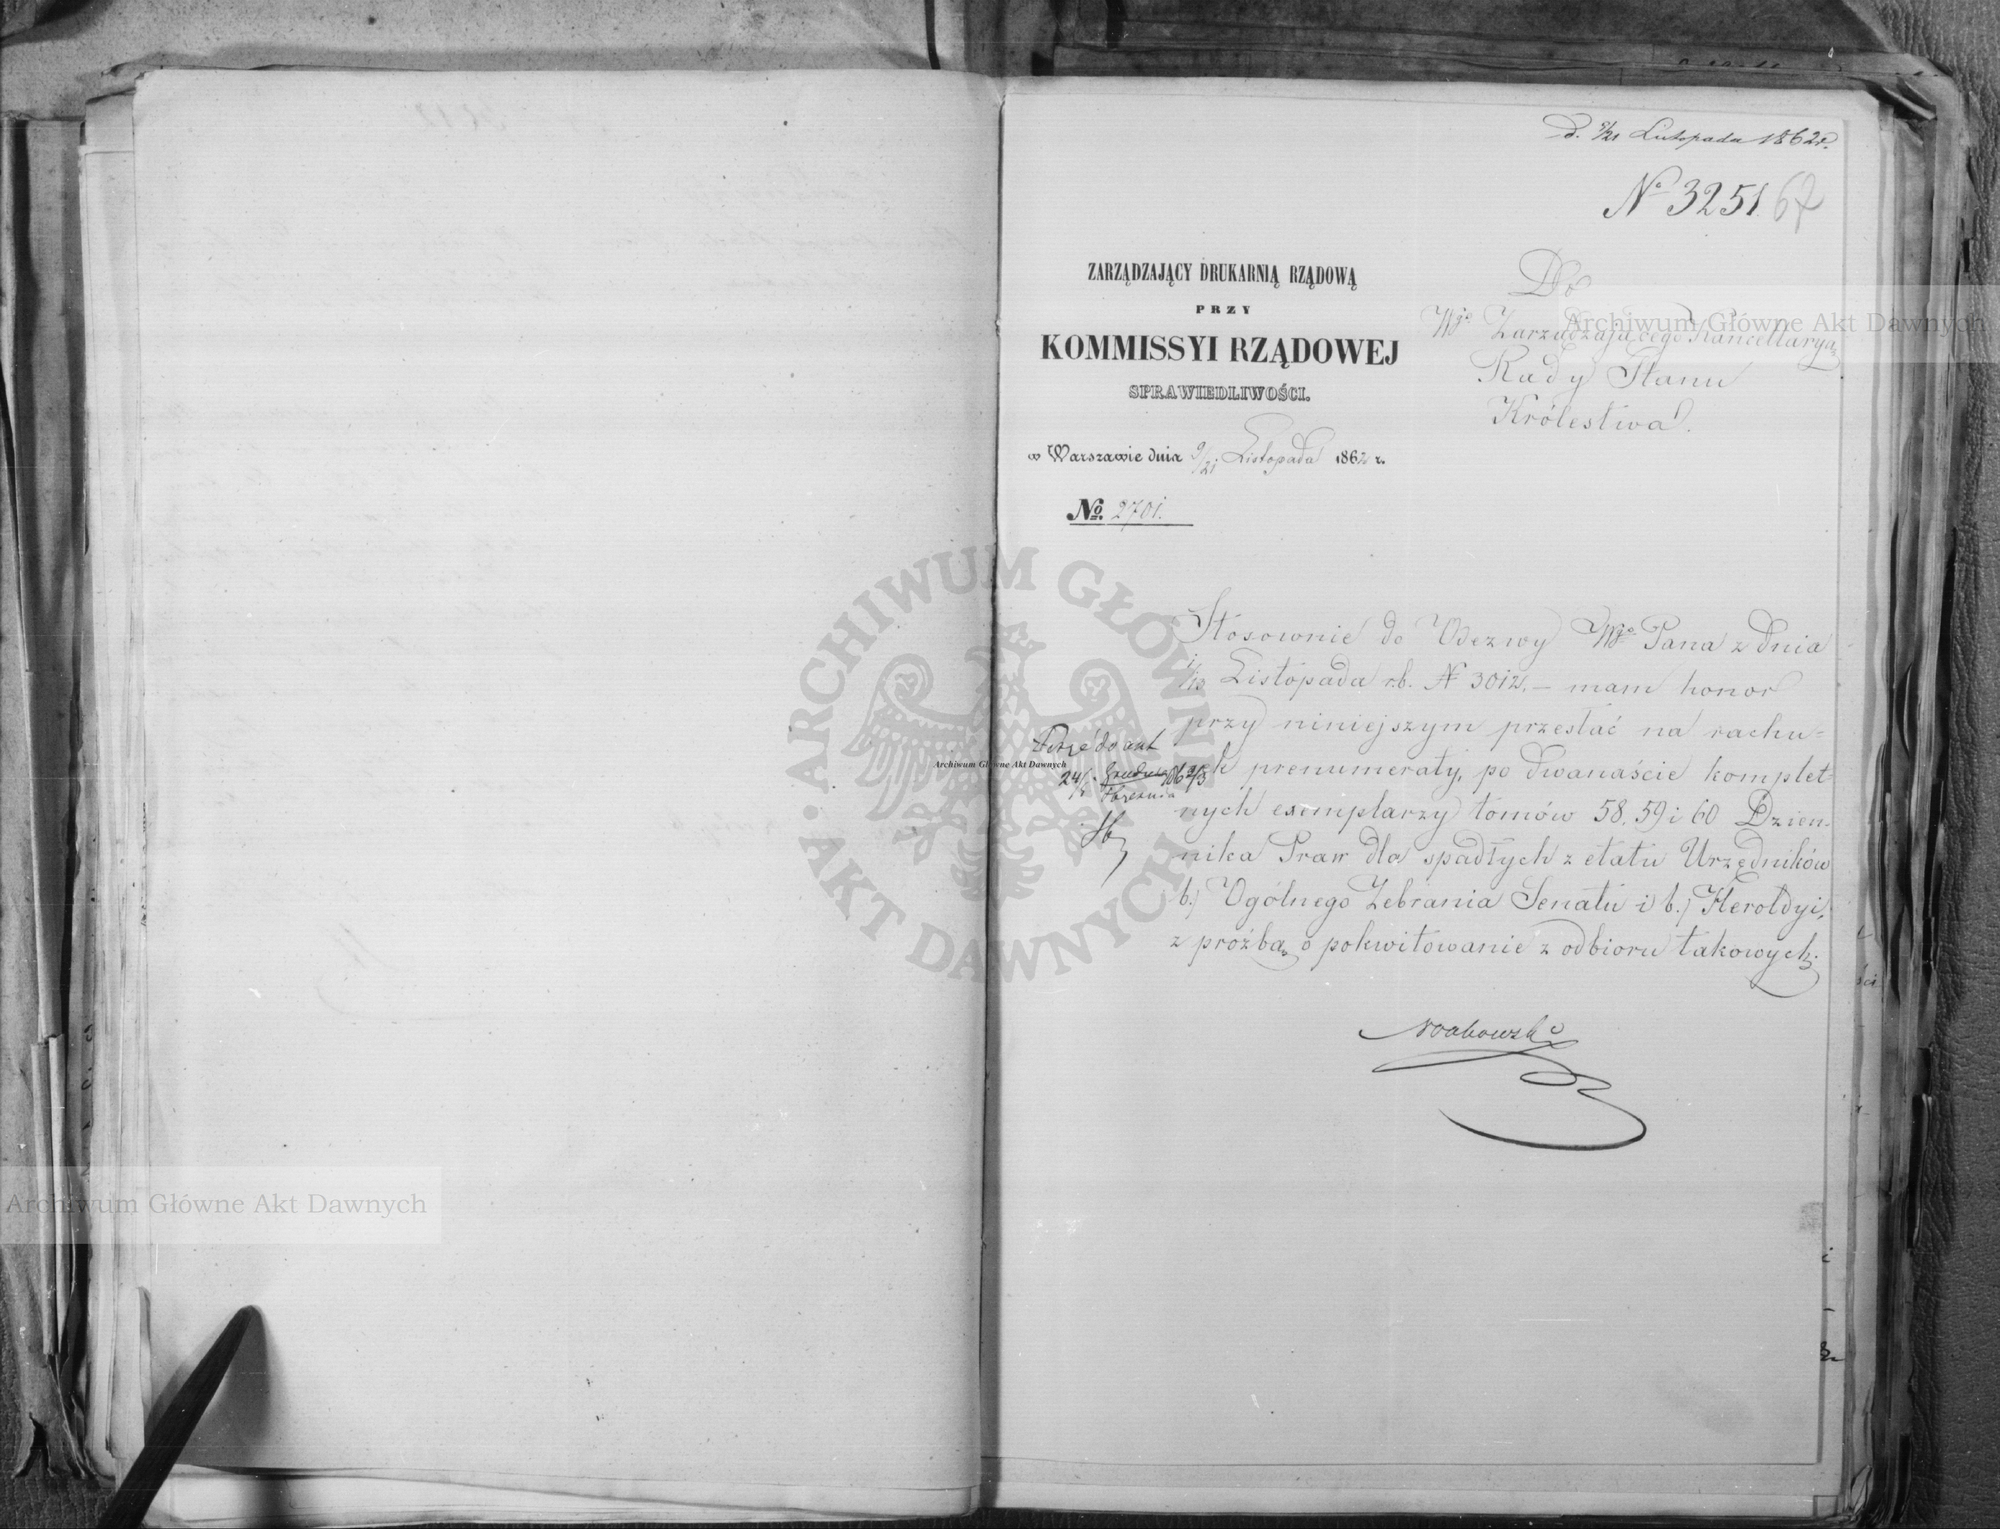 d. 9/21 Listopada 1862 r.
No 3251. 67
ZARZĄDZAJĄCY DRUKARNIĄ RZĄDOWĄ
PRZY
KOMMISSYI RZĄDOWEJ
SPRAWIEDLIWOŚCI.
w Warszawie dnia 9/21 Listopada 1862 r.
No. 2701.
Do
Wgo Zarządzającego Kancellaryą
Rady Stanu
Królestwa.
Stosownie do Odezwy Wgo Pana z dnia
1/13 Listopada r.b. N 3012, – mam honor
przy niniejszym przesłać na rachu=
nek prenumeraty, po dwanaście komplet=
nych exemplarzy tomów 58, 59 i 60 Dzien=
nika Praw dla spadłych z etatu Urzędników
b.) Ogólnego Zebrania Senatu i b.) Heroldyi,
z prośbą o pokwitowanie z odbioru takowych.
24/5 Grudnia 1862/3
Stycznia
Archiwum Główne Akt Dawnych
Archiwum Główne Akt Dawnych
Archiwum Główne Akt Dawnych
ARCHIWUM GŁÓWNE AKT DAWNYCH